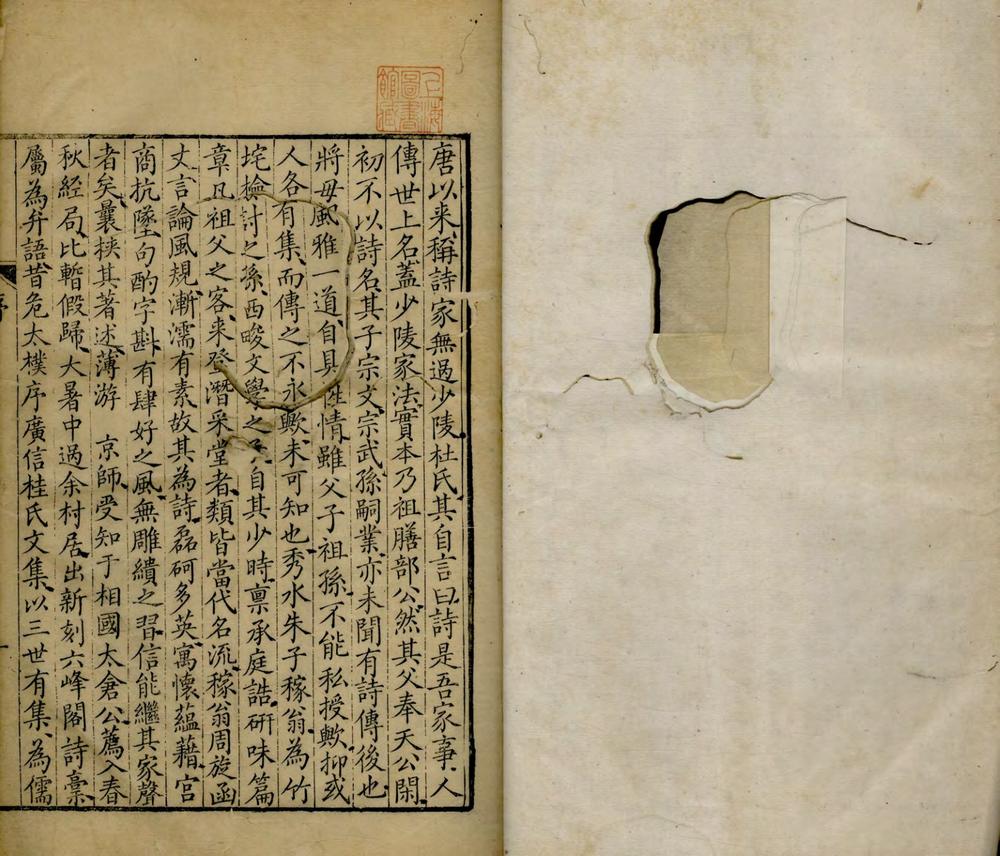 上海圖書館藏
唐以来稱詩家無過少陵杜氏其自言曰詩是吾家事人
傳世上名蓋少陵家法實本乃祖膳部公然其父奉天公閑
初不以詩名其子宗文宗武孫嗣業亦未聞有詩傳後也
將毋風雅一道自具性情雖父子祖孫不能私授歟抑或
人各有集而傳之不永歟未可知也秀水朱子稼翁為竹
垞檢討之孫西畯文學之子自其少時禀承庭誥研味篇
章凡祖父之客来登潛采堂者類皆當代名流稼翁周旋函
丈言論風規漸濡有素故其為詩磊砢多英寓懷蘊藉宮
商抗墜句酌字斟有肆好之風無雕繢之習信能繼其家聲
者矣曩梜其著述薄游 京師受知于相國太倉公薦入春
秋經局比暫假歸大暑中過余村居出新刻六峰閣詩稾
屬為弁語昔危太樸序廣信桂氏文集以三世有集為儒